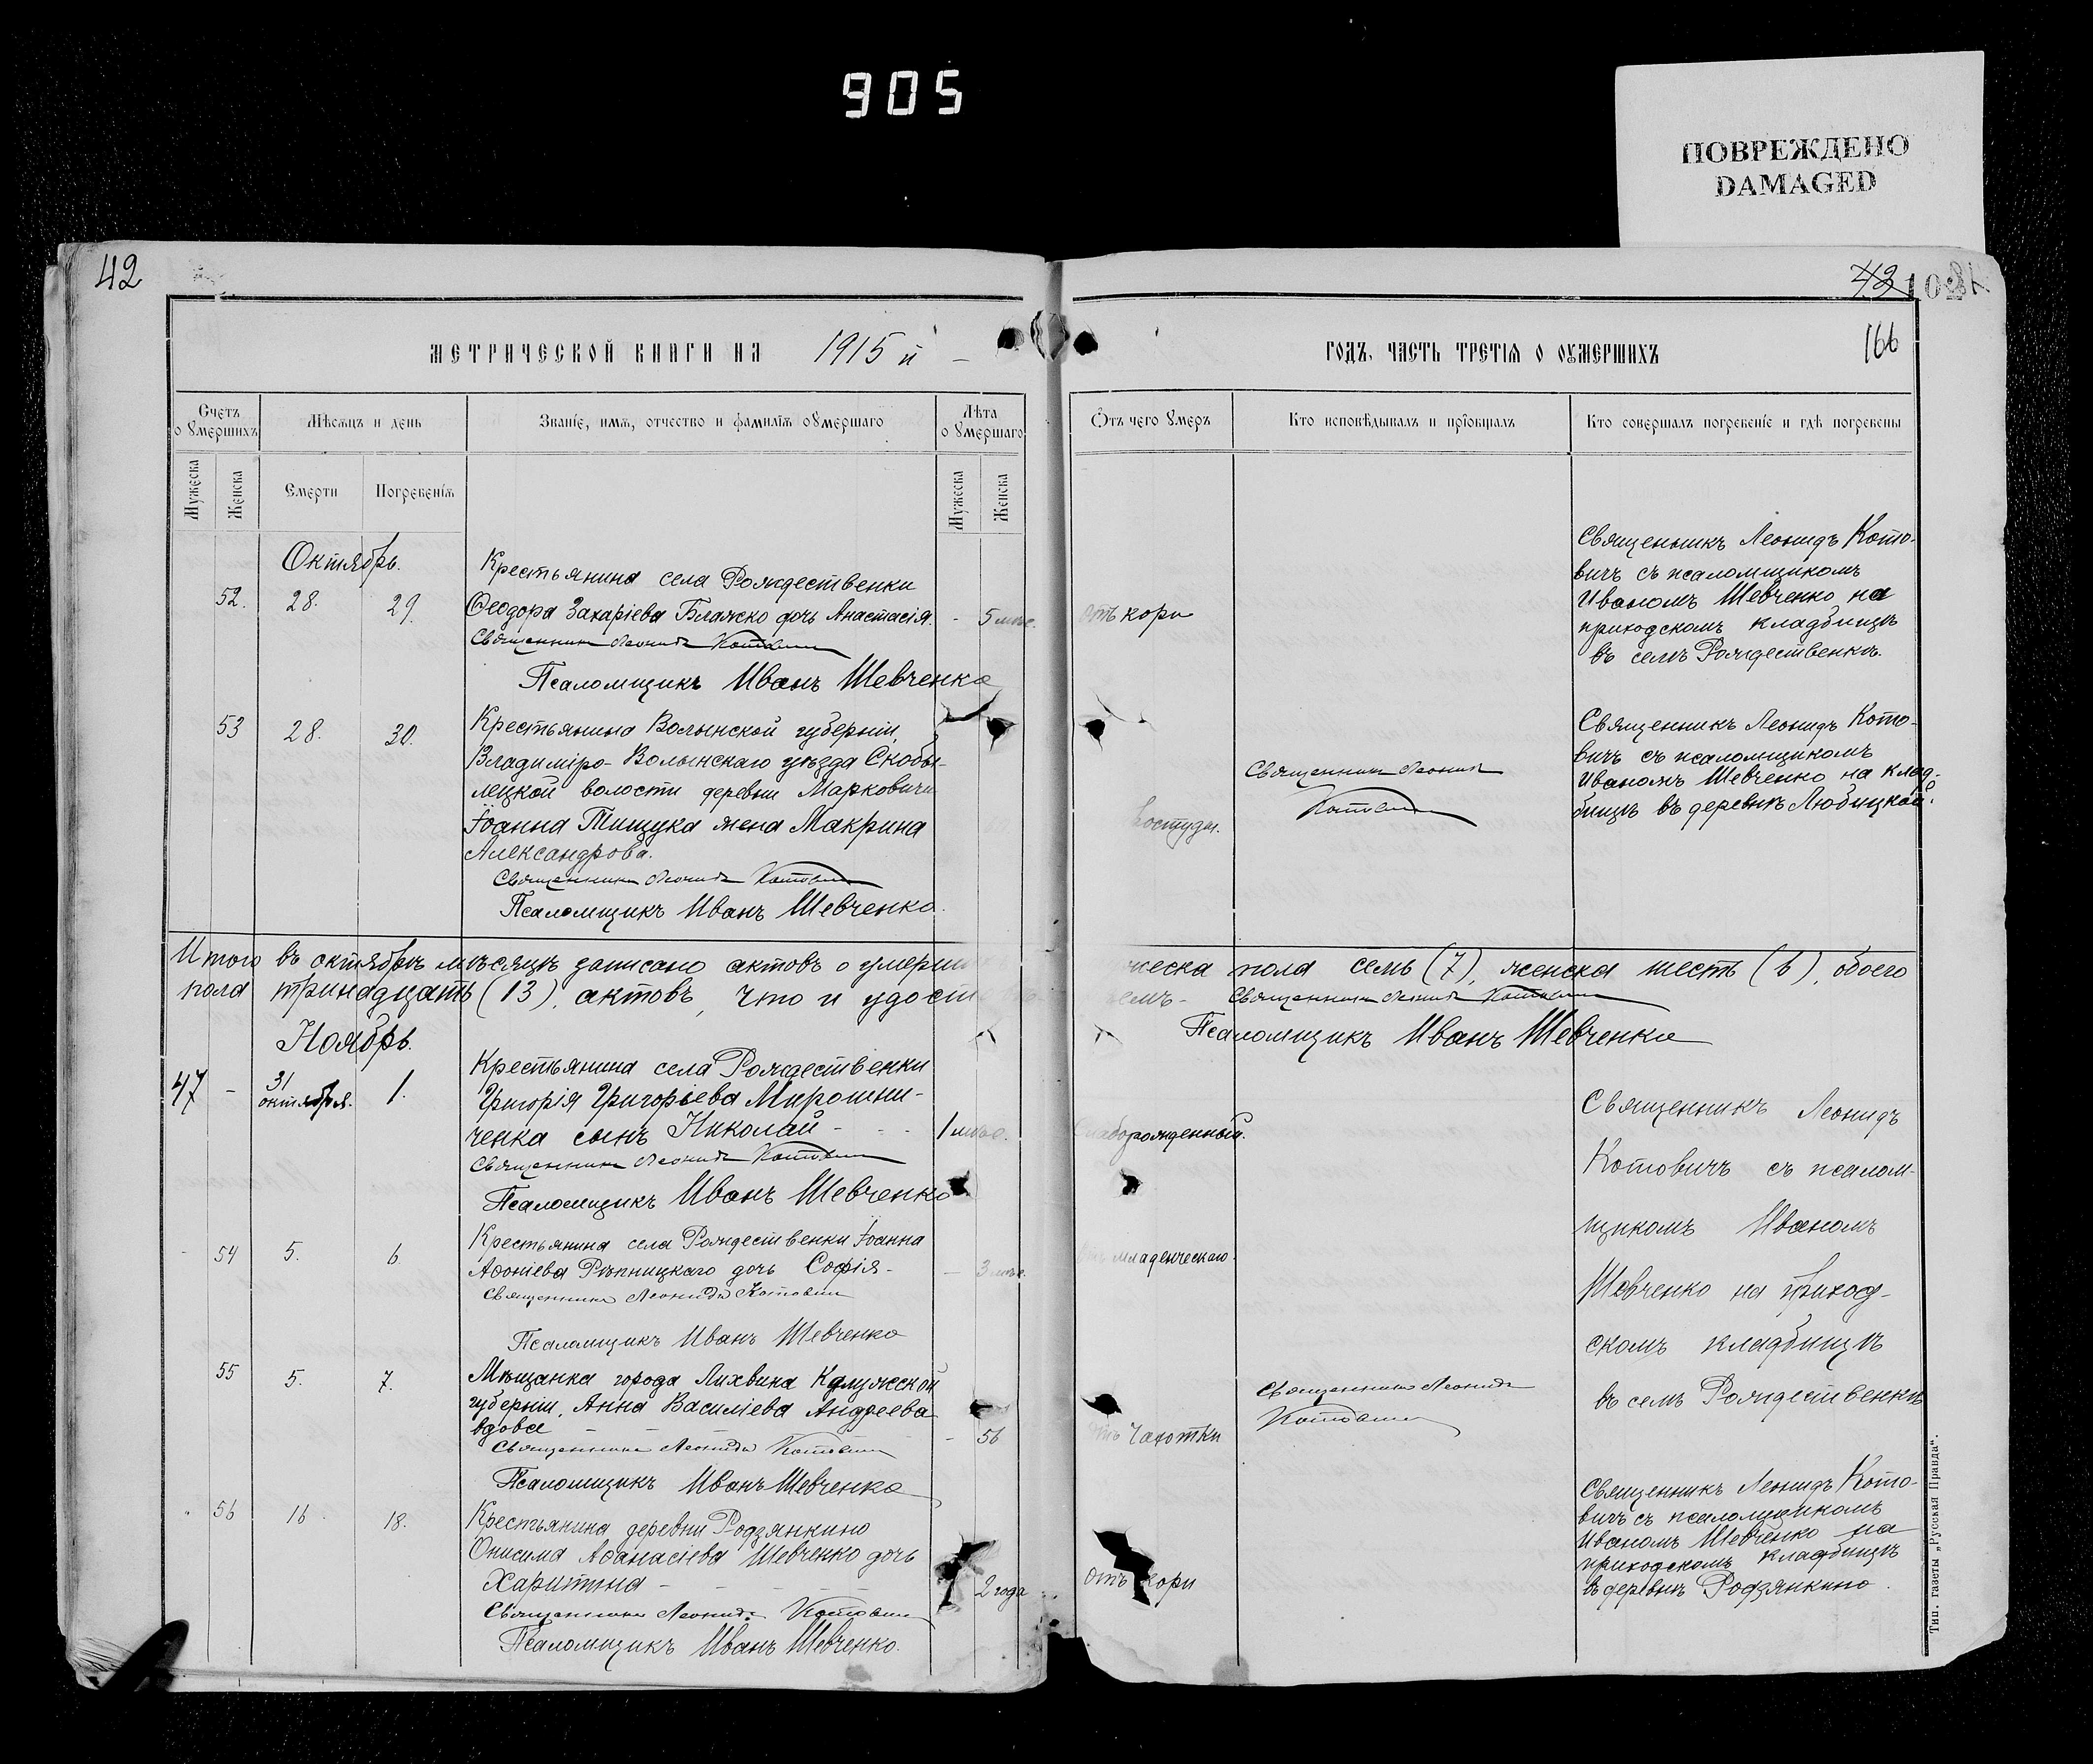 905
ПОВРЕЖДЕНО
DAMAGED
42
43
102
166
МЕТРИЧЕСКОЙ КНИГИ НА 1915 й
ГОДЪ, ЧАСТЬ ТРЕТІѦ О ОУМЕРШИХЪ
Счетъ о умершихъ
Мѣсяцъ и день
Званіе, имя, отчество и фамилія оумершаго
Лѣта оумершаго
Мужеска
Женска
Смерти
Погребенія
Мужеска
Женска
Отъ чего умеръ
Кто исповѣдывалъ и пріобщалъ
Кто совершалъ погребеніе и гдѣ погребены
Октябрь.
52. 28. 29.
Крестьянина села Рождественки
Ѳеодора Захаріева Блажко дочь Анастасія. - 5 мѣс.
Священникъ Леонидъ Котовичъ
Псаломщикъ Иванъ Шевченко
отъ кори
Священникъ Леонидъ Кото-
вичъ съ псаломщикомъ
Иваномъ Шевченко на
приходскомъ кладбищѣ
въ селѣ Рождественкѣ.
53 28. 30.
Крестьянина Волынской губерніи,
Владиміро-Волынскаго уѣзда Скобы-
лецкой волости деревни Марковичи
Іоанна Тищука жена Макрина
Александрова.
Священникъ Леонидъ Котовичъ
Псаломщикъ Иванъ Шевченко.
простуды.
Священникъ Леонидъ
Котовичъ
Священникъ Леонидъ Кото-
вичъ съ псаломщикомъ
Иваномъ Шевченко на клад-
бищѣ въ деревнѣ Любицкой.
Итого въ октябрѣ мѣсяцѣ записано актовъ о умерш
жеска пола семь (7), женска шесть (6), обоего
пола тринадцать (13), актовъ, что и удост
емъ- Священникъ Леонидъ Котовичъ
Псаломщикъ Иванъ Шевченко
Ноябрь.
47 - 31 октября. 1.
Крестьянина села Рождественки
Григорія Григорьева Мирошни-
ченка сынъ Николай - - - 1 мѣс.
Священникъ Леонидъ Котовичъ
Псаломщикъ Иванъ Шевченко
Слаборожденный.
- 54 5. 6
Крестьянина села Рождественки Іоанна
Аѳоніева Рѣпницкаго дочь Софія - - 3 мѣс.
Священникъ Леонидъ Котовичъ
Псаломщикъ Иванъ Шевченко
младенческаго.
55 5. 7.
Мѣщанка города Лихвина Калужской
губерніи, Анна Василіева Андреева
вдова - - - - - 56
Священникъ Леонидъ Котовичъ
Псаломщикъ Иванъ Шевченко
отъ чахотки
Священникъ Леонидъ
Котовичъ
Священникъ Леонидъ
Котовичъ съ псалом-
щикомъ Иваномъ
Шевченко на приход-
скомъ кладбищѣ
въ селѣ Рождественкѣ
56 16. 18.
Крестьянина деревни Родзянкино
Онисима Аѳанасіева Шевченко дочь
Харитина - - - - 2 года
Священникъ Леонидъ Котовичъ
Псаломщикъ Иванъ Шевченко.
отъ кори
Священникъ Леонидъ Кото-
вичъ съ псаломщикомъ
Иваномъ Шевченко на
приходскомъ кладбищѣ
въ деревнѣ Родзянкино.
Тип. газеты „Русская Правда“.